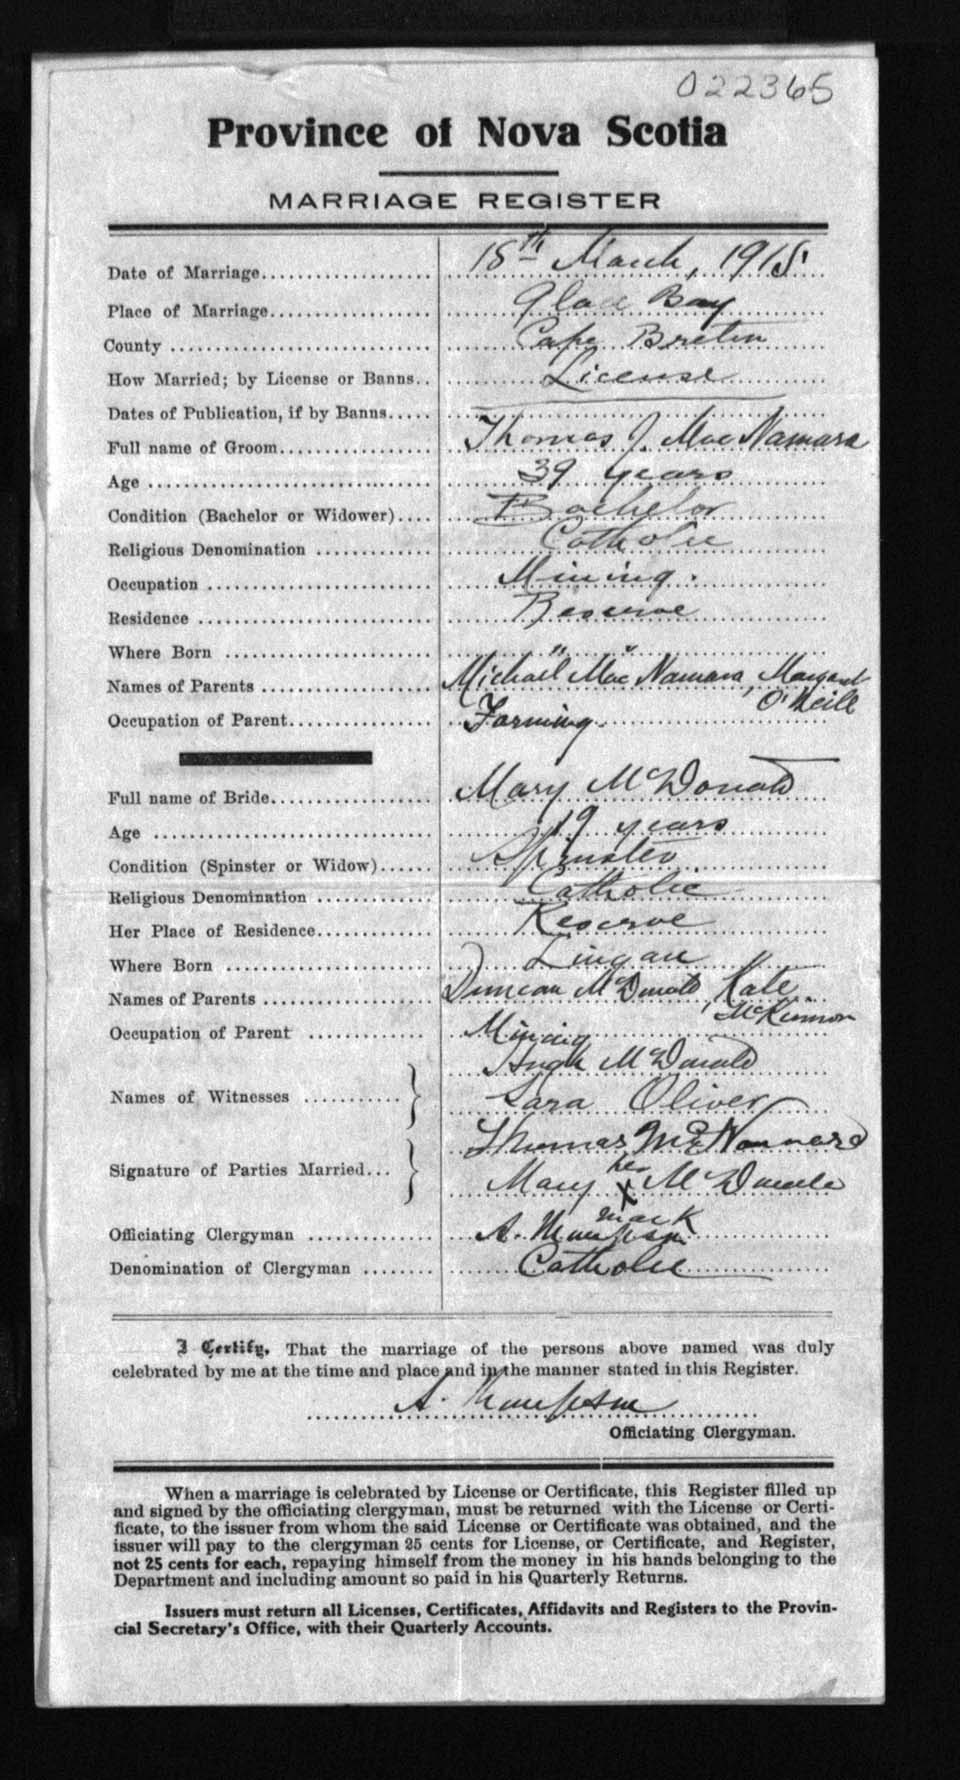 022365
Province of Nova Scotia
MARRIAGE REGISTER
Date of Marriage.................... 18th March, 1918.
Place of Marriage.................. Glace Bay
County ............................ Cape Breton
How Married; by License or Banns.. License
Dates of Publication, if by Banns.....
Full name of Groom................ Thomas J. MacNamara
Age .............................. 39 years
Condition (Bachelor or Widower).... Bachelor
Religious Denomination ............ Catholic
Occupation ........................ Mining.
Residence ......................... Reserve
Where Born ........................ " "
Names of Parents .................. Michael MacNamara, Margaret O'Neill
Occupation of Parent............... Farming.
Full name of Bride................. Mary McDonald
Age ............................... 19 years
Condition (Spinster or Widow)...... Spinster
Religious Denomination ............ Catholic
Her Place of Residence............. Reserve
Where Born ........................ Lingan
Names of Parents .................. Duncan McDonald, Kate McKinnon
Occupation of Parent .............. Mining
Names of Witnesses ........... } Hugh McDonald
Sara Oliver
Signature of Parties Married... } Thomas McNamara
Mary her X mark McDonald
Officiating Clergyman ............. A. Thompson
Denomination of Clergyman ........ Catholic
I Certify, That the marriage of the persons above named was duly
celebrated by me at the time and place and in the manner stated in this Register.
A. Thompson
Officiating Clergyman.
When a marriage is celebrated by License or Certificate, this Register filled up
and signed by the officiating clergyman, must be returned with the License or Certi-
ficate, to the issuer from whom the said License or Certificate was obtained, and the
issuer will pay to the clergyman 25 cents for License, or Certificate, and Register,
not 25 cents for each, repaying himself from the money in his hands belonging to the
Department and including amount so paid in his Quarterly Returns.
Issuers must return all Licenses, Certificates, Affidavits and Registers to the Provin-
cial Secretary's Office, with their Quarterly Accounts.